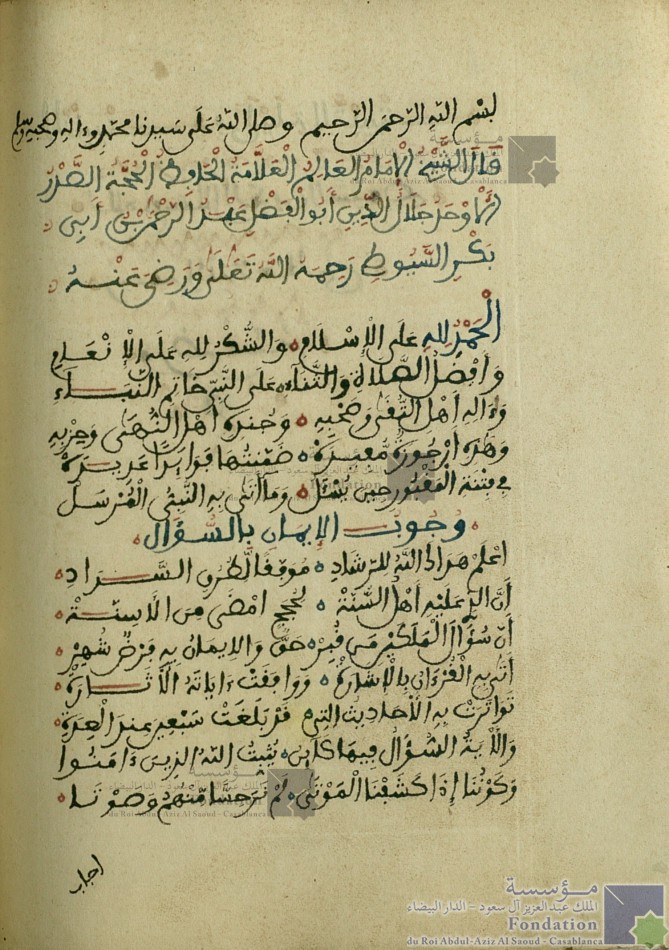 بسم الله الرحمن الرحيم وصلى الله على سيدنا محمد وءاله وصحبه وسلم
قال الشيخ الإمام العالم العلامة الحافظ الحجة الصدر
الأوحد جلال الدين أبو الفضل عبد الرحمن بن أبي
بكر السيوطي رحمه الله تعلى ورضي عنه
الحمد لله على الإسلام والشكر لله على الإنعام
وأفضل الصلاة والثناء على النبي خاتم النباء
وءاله أهل التقى وصحبه وجنده أهل النهى وحزبه
وهذه أرجوزة مفيدة ضمنتها فوائدا عديدة
في فتنة المقبور حين يسئل وما أتى به النبي المرسل
وجوب الإيمان بالسؤال
اعلم هداك الله للرشاد موفقا لطرق السداد
أن الذي عليه أهل السنة لحجج امضى من الاسنة
أن سؤال الملكين من قبره حق والإيمان به فرض شهر
أتى به القرءان بالإشارة ووافقت ءاياته الأثارة
تواترت به الأحاديث التي قد بلغت سبعين عند العدة
والأية السؤال فيها كامن يثبت الله الذين ءامنوا
وكوننا إذا كشفنا الموتى لم نر حسا منهم وصوتا
اجاب
مؤسسة
الملك عبد العزيز آل سعود - الدار البيضاء
Fondation
du Roi Abdul-Aziz Al Saoud - Casablanca